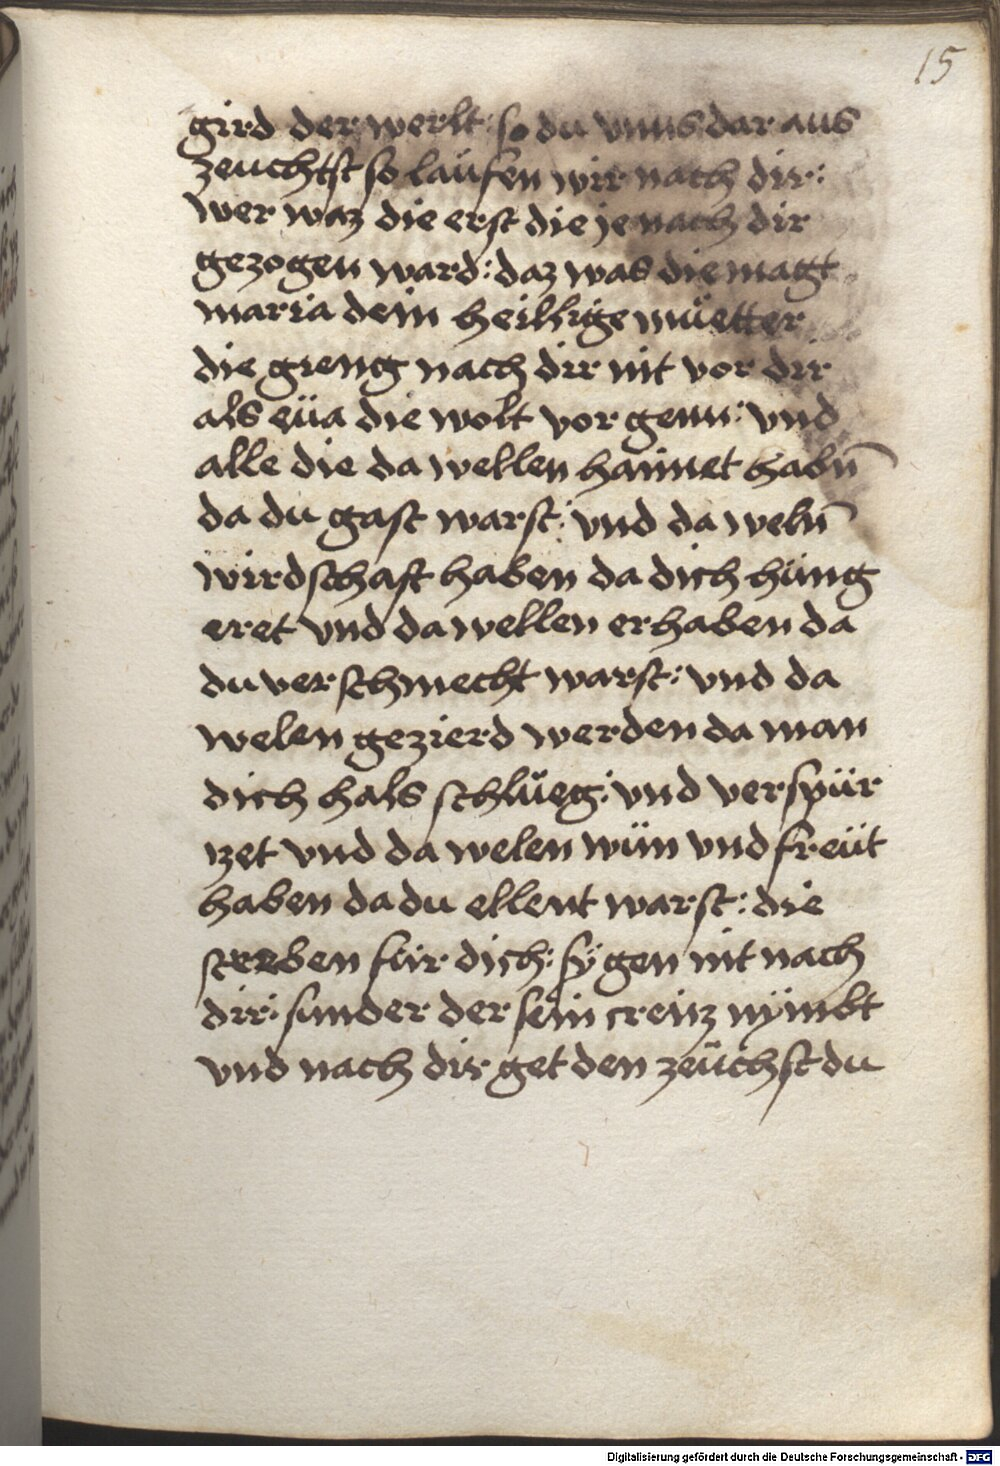 15
gird der werlt: so du vnns dar aus
zeuchtst so laüfen wir nach dir:
wer waz die erst die je nach dir
gezogen ward: daz was die magt
maria dein heillige müetter
die gieng nach dir nit vor dir
als eüa die wolt vor genn: vnd
alle die da wellen haimet habn̄
da du gast warst: vnd da weln̄
wirdschaft haben da dich hüng
eret vnd da wellen erhaben da
du verschmecht warst: vnd da
welen gezierd werden da man
dich hals schlüeg: vnd verspür
zet vnd da welen wün vnd freüt
haben da du ellent warst: die
sterben für dich: sÿ gen nit nach
dir: sunder der sein creüz nÿmbt
vnd nach dir get den zeüchst du
Digitalisierung gefördert durch die Deutsche Forschungsgemeinschaft - DFG